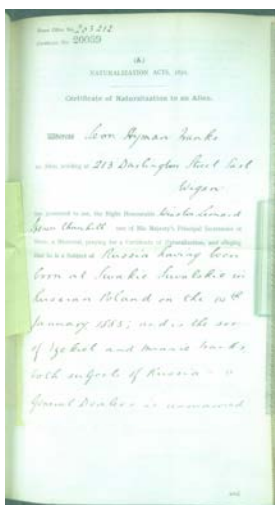 Home Office No. 203,212
Certificate No. 20059
(A)
NATURALIZATION ACT, 1870.
Certificate of Naturalization to an Alien.
Whereas Leon Hyman Franks
an Alien, residing at 213 Darlington Street East
Wigan
has presented to me, the Right Honourable Winston Leonard
Spencer Churchill one of His Majesty's Principal Secretaries of
State, a Memorial, praying for a Certificate of Naturalization, and alleging
that he is a Subject of Russia having been
born at Suwalki in
Russian Poland on the
January 1883; and is the son
of and Minnie Franks,
both subjects of Russia - a
General Dealer is unmarried
and